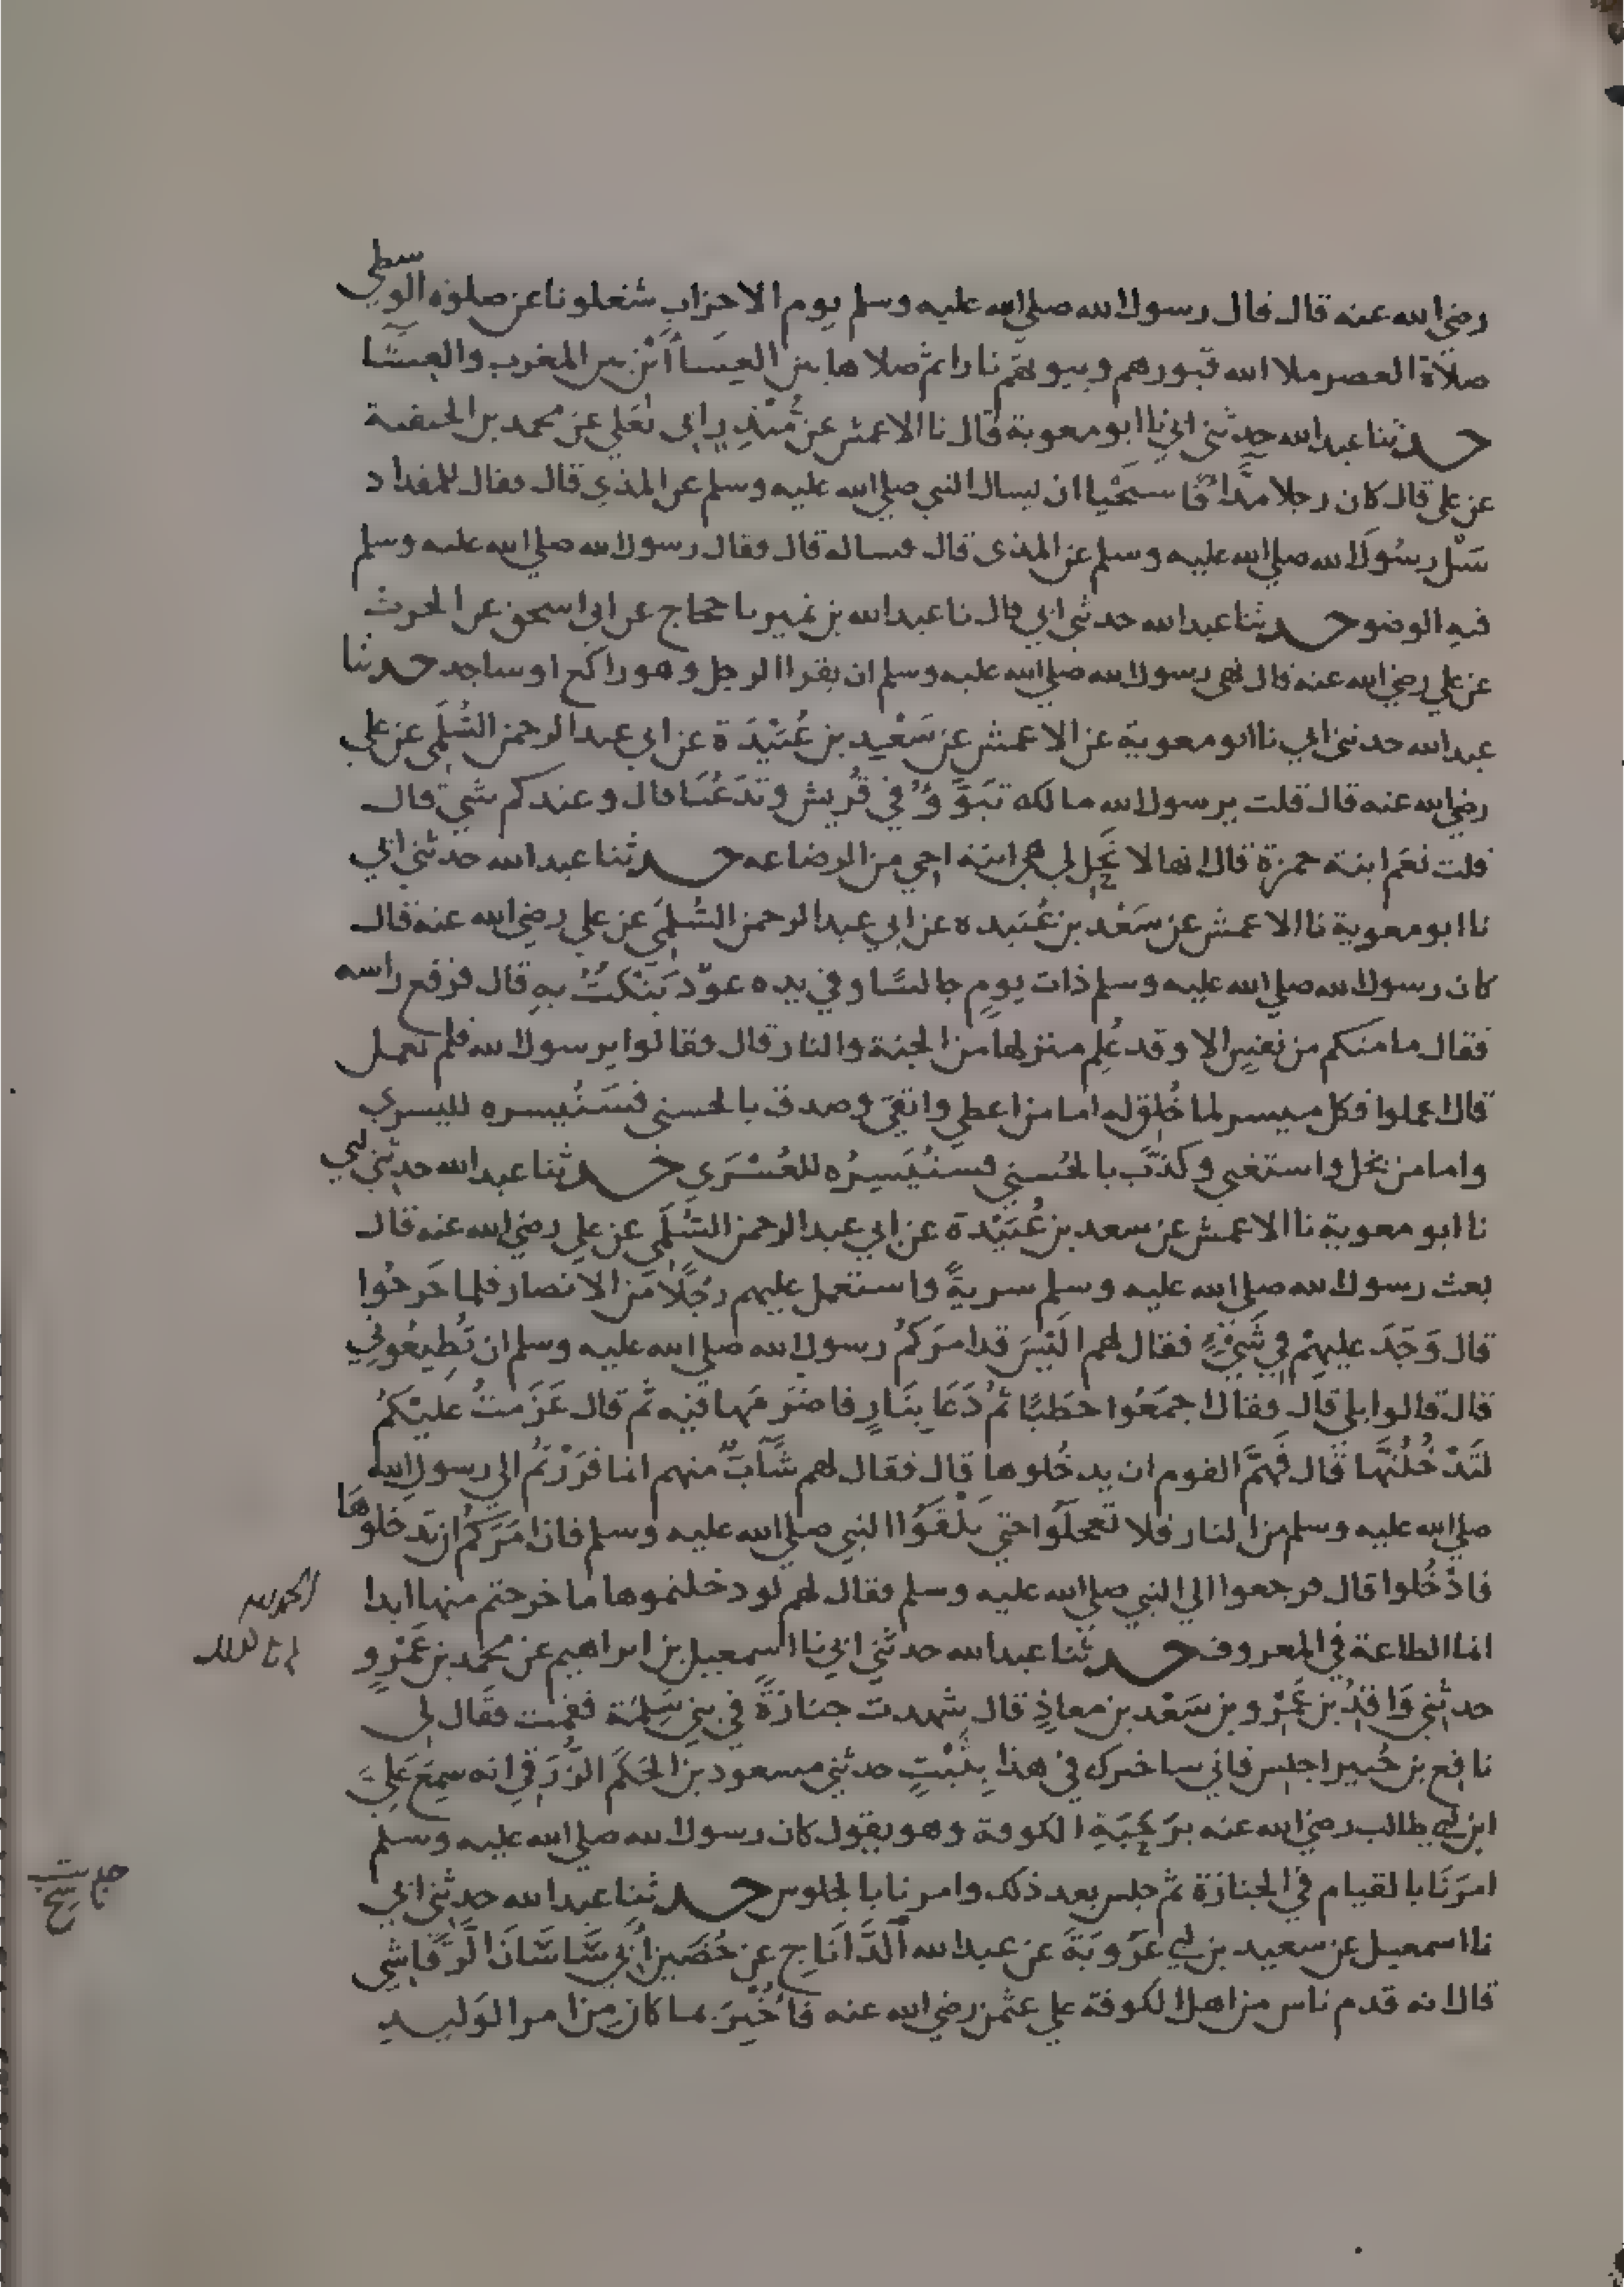 رضي الله عنه قال قال رسول الله صلى الله عليه وسلم يوم الاحزاب شغلونا عن صلوة الوسطي
صلاة العصر ملا الله قبورهم وبيوتهم نارا ثم صلاها بين العشاأين بين المغرب والعشا
حدثنا عبد الله حدثني ابي نا ابو معوية قال نا الاعمش عن مُنْذِرٍ ابي يَعْلي عن محمد بن الحنفية
عن علي قال كان رجلا مذَّاءً فاستَحْيا ان يسال النبي صلي الله عليه وسلم عن المذي قال فقال للمقداد
سَلْ رسُولَ الله صلي الله عليه وسلم عن المذي قال فساله قال فقال رسول الله صلي الله عليه وسلم
فيه الوضو حدثنا عبد الله حدثني ابي قال نا عبد الله بن نمير نا حجاج عن ابي اسحق عن الحرث
عن علي رضي الله عنه قال نهي رسول الله صلي الله عليه وسلم ان يقرا الرجل وهو راكع او ساجد حدثنا
عبد الله حدثني ابي نا ابو معوية عن الاعمش عن سَعْيد بن عُبَيْدَة عن ابي عبد الرحمن السُّلَمي عن علي
رضي الله عنه قال قلت يرسول الله مالك تَنَوَّقُ في قُريش وتَدَعُنَا قال وعندكم شيئ قال
قلت نعَم ابنة حمزة قال انها لا تحِل لي هي ابنة اخي من الرضاعه حدثنا عبد الله حدثني ابي
نا ابو معوية نا الاعمش عن سَعْد بن عُبَيده عن ابي عبد الرحمن السُّلَمي عن علي رضي الله عنه قال
كان رسول الله صلي الله عليه وسلم ذات يومٍ جالسًا وفي يده عودٌ يَنْكتُ بهِ قال فرفع راسه
فقال ما منكم من نفسٍ الا وقد عُلِم منزلها من الجنة والنار قال فقالوا يرسول الله فلم نعمل
قال اعملوا فكل ميسر لما خُلِق له اما من اعطي واتقيَ وصدق بالحسني فسَنُيسره لليسري
واما من بخل واستغني وكذَّبَ بالحُسني فسَنُيَسِرُه للعُسْرَي حدثنا عبد الله حدثني ابي
نا ابو معوية نا الاعمش عن سعد بن عُبَيْدة عن ابي عبد الرحمن السُّلَمي عن علي رضي الله عنه قال
بعث رسول الله صلي الله عليه وسلم سريةً واستعمل عليهم رجُلًا مَن الانصار فلما خَرجُوا
قال وَجَدَ عليهِمْ في شَيْءٍ فقال لهم الَيْسَ قد امرَكمُ رسول الله صلي الله عليه وسلم ان تُطِيعُوني
قال قالوا بلي قال فقال اجمَعُوا حَطَبًا ثمُ دَعَا بِنَارٍ فاضرَمَها فيه ثم قال عَزَمتُ عليْكمُ
لتَدْخُلُنَّها قال فَهَمَّ القوم ان يدخُلوها قال فقال لهم شَآبٌّ منهم انما فَرَرْتُمُ الي رسولِ الله
صلي الله عليه وسلم من النار فلا تعجَلَوا حتي تَلْقَوُا النبي صلي الله عليه وسلم فان امَرَكمُ ان تَدخلوهَا
فادْخُلوا قال فرجعوا الي النبي صلي الله عليه وسلم فقال لهم لو دخلتموها ما خرجتم منها ابدا
انما الطاعة في المعروف حدثنا عبد الله حدثني ابي نا اسمعيل بن ابراهيم عن محمد بن عَمْرٍو
حدثني وَاقِدُ بن عَمْرو بن سَعْد بن معاذٍ قال شهدت جنازةً في بني سَلِمَة فقمت فقال لي
نافِع بن جُبير اجلِس فاني ساخبرك في هذا بِثَبْتٍ حدثني مسعود بن الحَكَم الزُّرَقي انه سمِعَ عَليَّ
ابن ابي طالب رضي الله عنه برَحَبَةِ الكوفة وهو يقول كان رسول الله صلي الله عليه وسلم
امرَنَا بالقيام في الجنازة ثم جلس بعد ذلك وامرنا بالجلوس حدثنا عبد الله حدثني ابي
نا اسمعيل عن سعيد بن ابي عَرُوبَةَ عن عبد الله الدَّانَاجِ عن حُضَين ابي سَاسَانَ الرَّقَاشي
قال انه قدم ناس من اهل الكوفة علي عثمن رضي الله عنه فاخْبِرَ بما كان مِن امر الوَليدِ